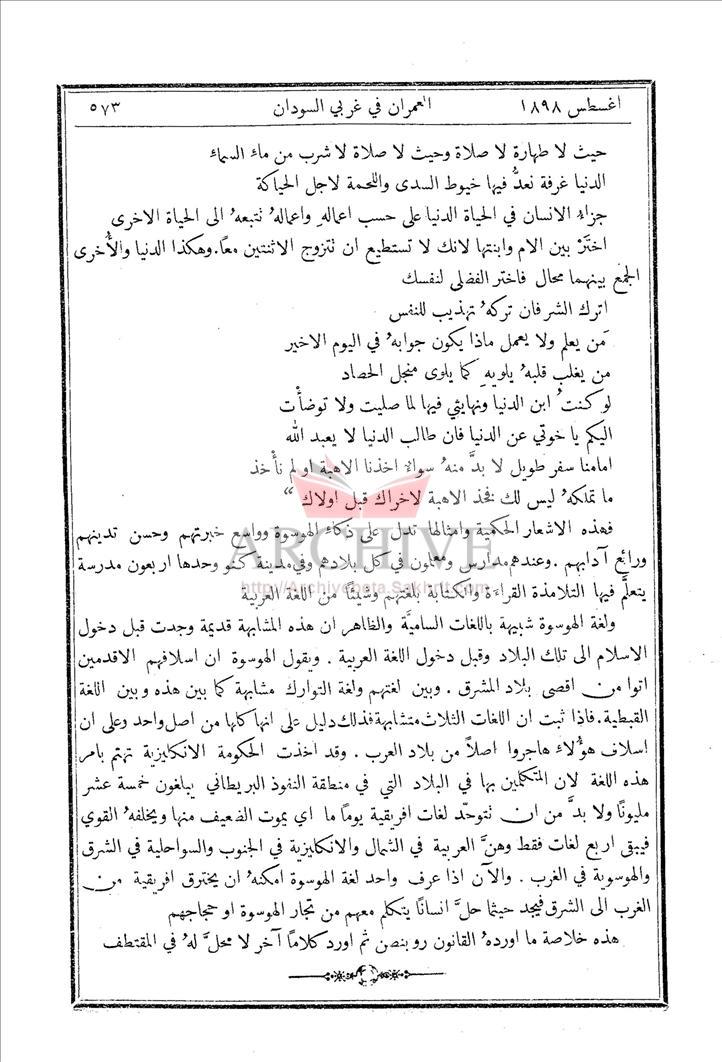 اغسطس ١٨٩٨ العمران في غربي السودان ٥٧٣
حيث لا طهارة لا صلاة وحيث لا صلاة لا شرب من ماء السماء
الدنيا غرفة نعدُّ فيها خيوط السدى واللحمة لاجل الحياكة
جزاء الانسان في الحياة الدنيا على حسب اعماله واعماله نتبعهُ الى الحياة الاخرى
اختَرْ بين الام وابنتها لانك لا تستطيع ان نتزوج الاثنتين معاً. وهكذا الدنيا والأُخرى
الجمع بينهما محال فاختر الفضلى لنفسك
اترك الشر فان تركهُ تهذيب للنفس
مَن يعلم ولا يعمل ماذا يكون جوابهُ في اليوم الاخير
من يغلب قلبهُ يلويهِ كما يلوى منجل الحصاد
لو كنتُ ابن الدنيا ونهايتي فيها لما صليت ولا توضأْت
اليكم يا خوتي عن الدنيا فان طالب الدنيا لا يعبد الله
امامنا سفر طويل لا بدَّ منهُ سواء اخذنا الاهبة او لم نأْخذ
ما تملكهُ ليس لك فخذ الاهبة لاخراك قبل اولاك "
فهذه الاشعار الحكمية وامثالها تدل على ذكاء الهوسوة وواسع خبرتهم وحسن تدينهم
ورائع آدابهم . وعندهم مدارس ومعلمون في كل بلادهم وفي مدينة كنو وحدها اربعون مدرسة
يتعلَّم فيها التلامذة القراءة والكتابة بلغتهم وشيئًا من اللغة العربية
ولغة الهوسوة شبيهة باللغات الساميَّة والظاهر ان هذه المشابهة قديمة وجدت قبل دخول
الاسلام الى تلك البلاد وقبل دخول اللغة العربية . ويقول الهوسوة ان اسلافهم الاقدمين
اتوا من اقصى بلاد المشرق . وبين لغتهم ولغة التوارك مشابهة كما بين هذه وبين اللغة
القبطية. فاذا ثبت ان اللغات الثلاث متشابهة فذلك دليل على انها كلها من اصل واحد وعلى ان
اسلاف هؤُلاء هاجروا اصلاً من بلاد العرب . وقد اخذت الحكومة الانكليزية تهتم بامر
هذه اللغة لان المتكلمين بها في البلاد التي في منطقة النفوذ البريطاني يبلغون خمسة عشر
مليونًا ولا بدَّ من ان نتوحَّد لغات افريقية يومًا ما اي يموت الضعيف منها ويخلفهُ القوي
فيبقى اربع لغات فقط وهنَّ العربية في الشمال والانكليزية في الجنوب والسواحلية في الشرق
والهوسوية في الغرب . والآن اذا عرف واحد لغة الهوسوة امكنهُ ان يخترق افريقية من
الغرب الى الشرق فيجد حيثما حلَّ انسانًا يتكلم معهم من تجار الهوسوة او حجاجهم
هذه خلاصة ما اوردهُ القانون روبنصن ثم اورد كلامًا آخر لا محلَّ لهُ في المقتطف
ARCHIVE
http://Archivebeta.Sakhrit.com